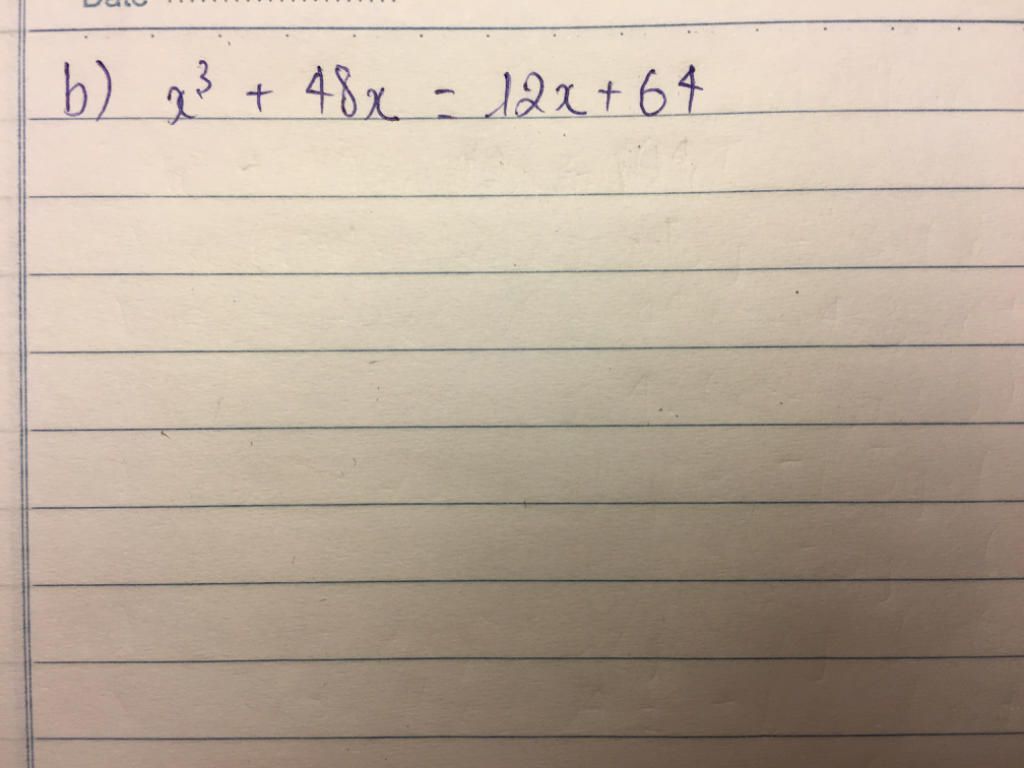 Date ........................
b) x³ + 48x = 12x + 64